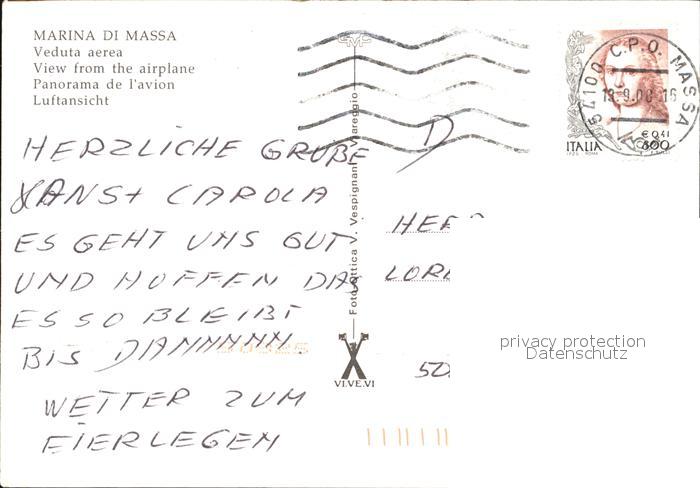 MARINA DI MASSA
Veduta aerea
View from the airplane
Panorama de l'avion
Luftansicht
HERZLICHE GRÜßE
HANS + CAROLA
ES GEHT UNS GUT
UND HOFFEN DAS
ES SO BLEIBT
BIS DANNNNNN.
WETTER ZUM
EIERLEGEN
Fotottica V. Vespignani Viareggio
VI.VE.VI
54100 C.P.O. MASSA
13.9.00 16
€ 0,41
800
ITALIA
D
HER
LOR
50
privacy protection
Datenschutz